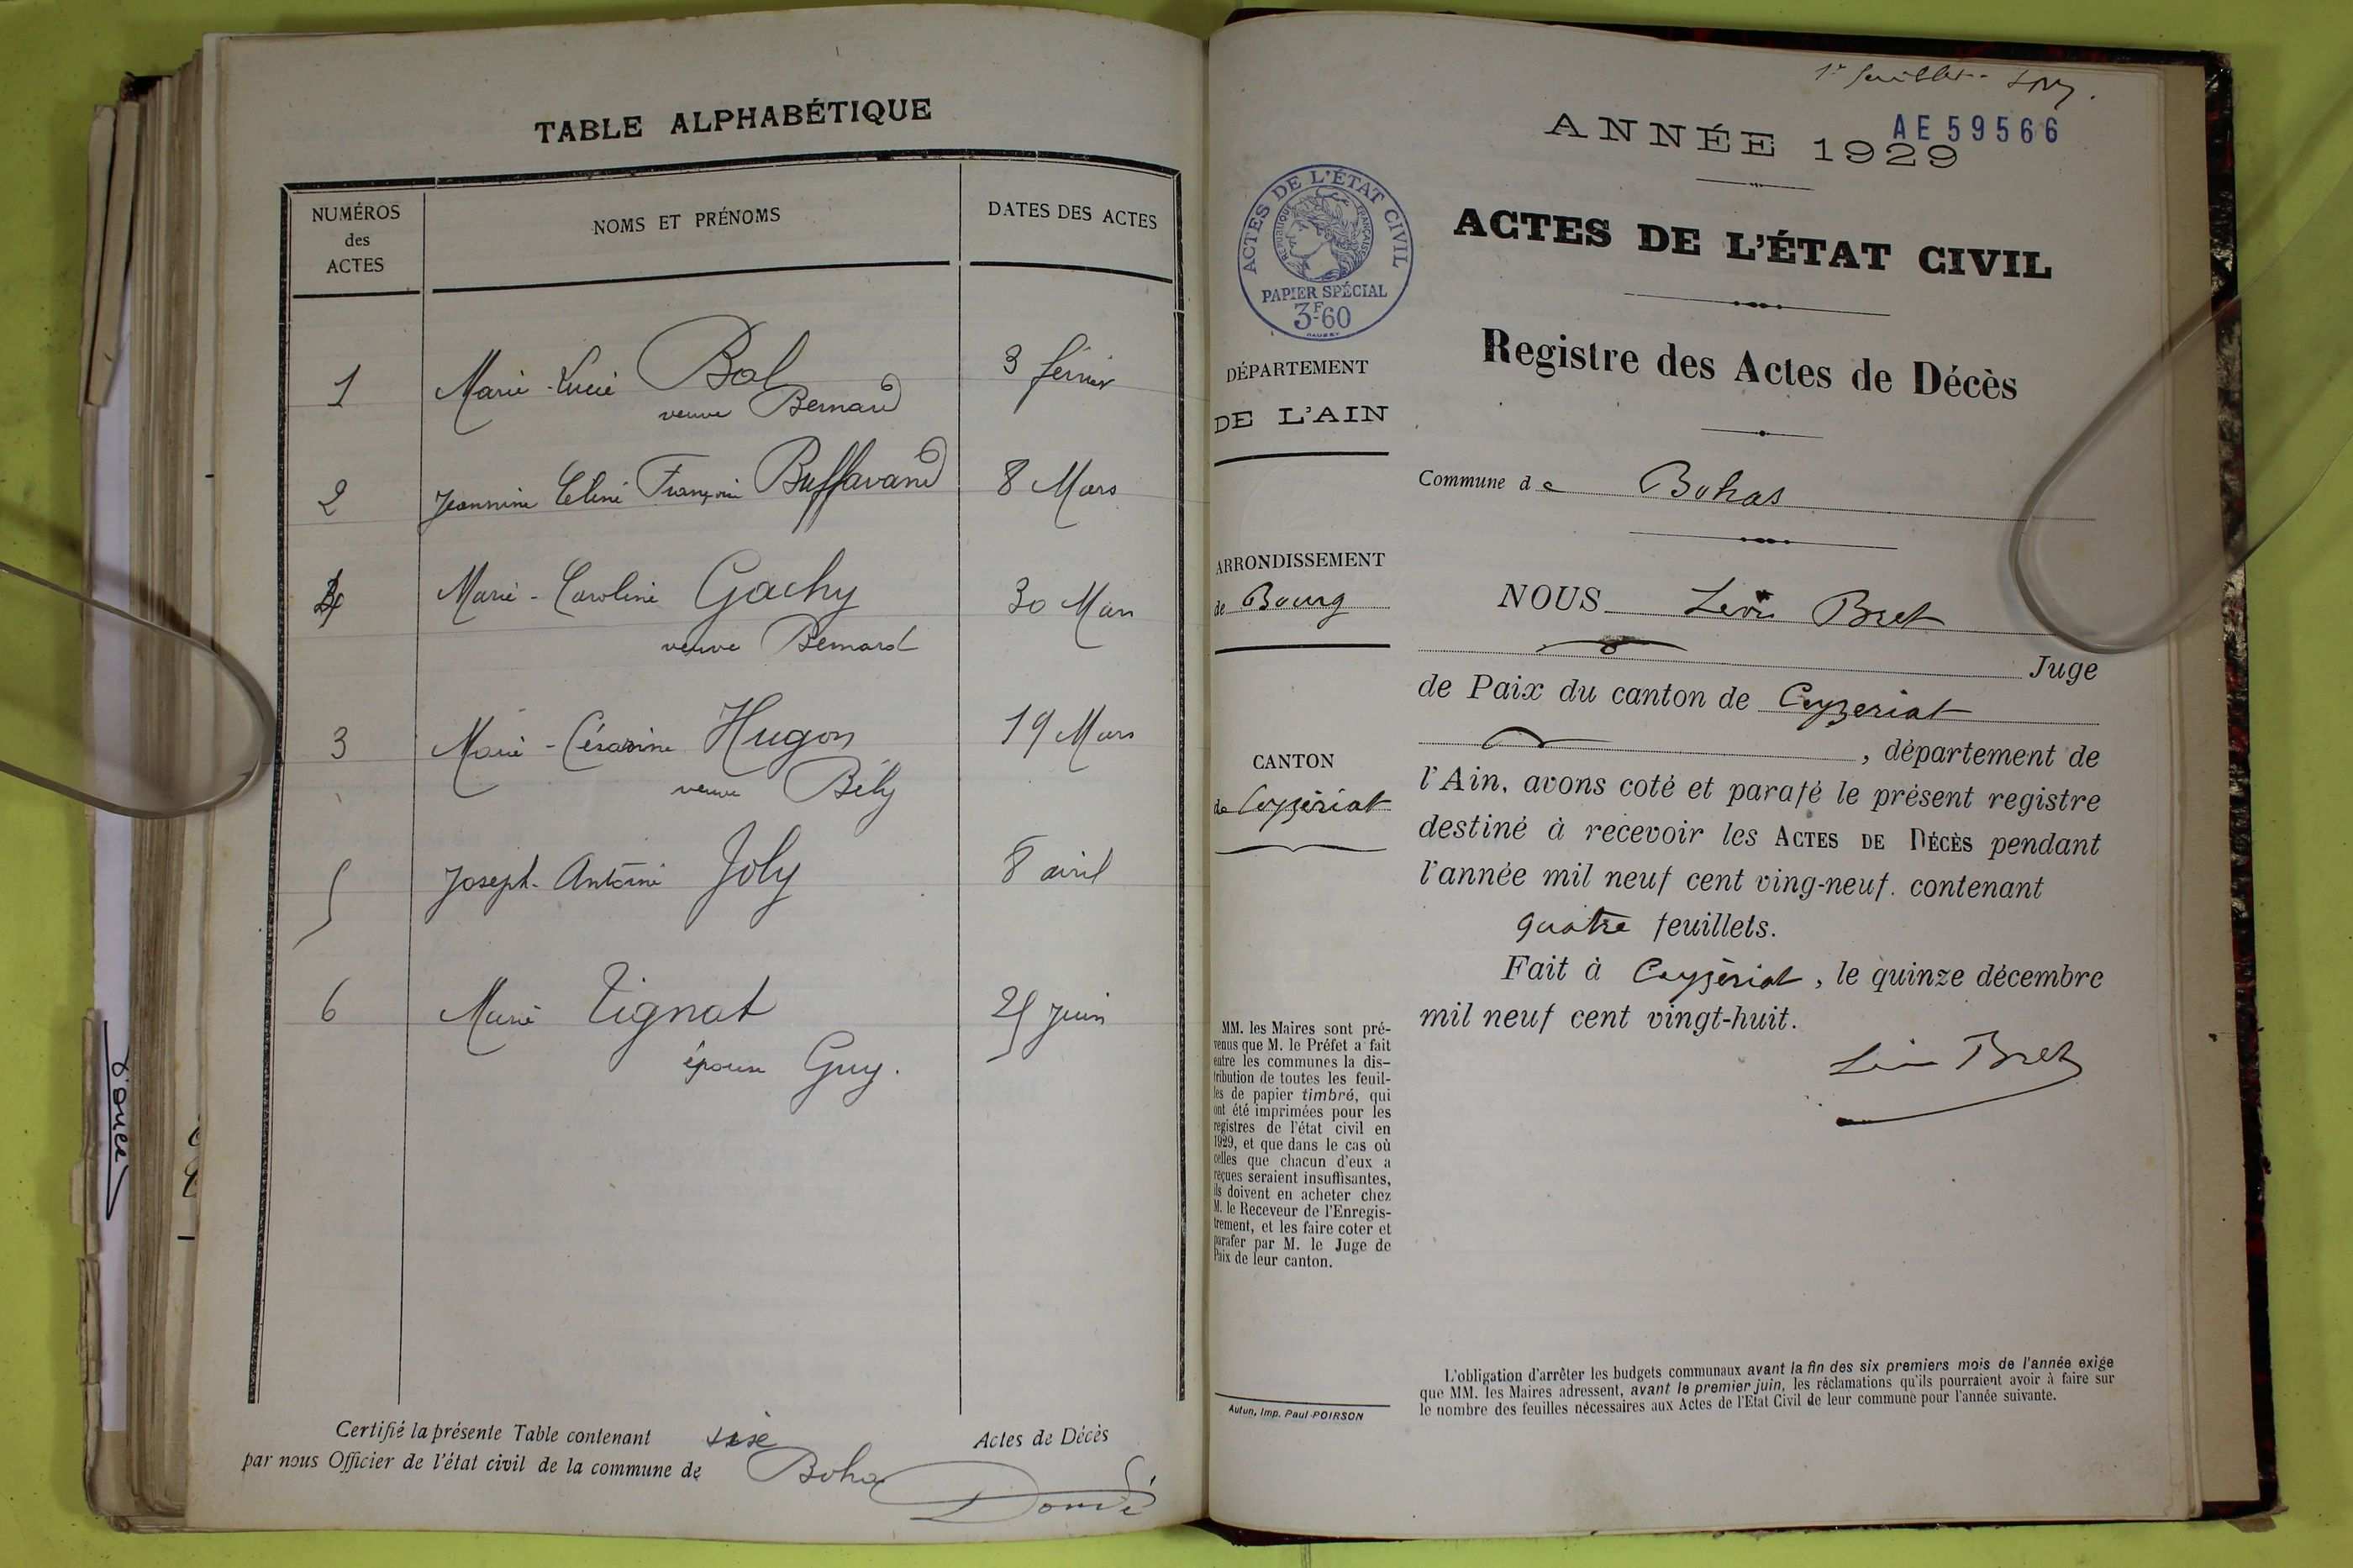 TABLE ALPHABÉTIQUE
NUMÉROS
des
ACTES
NOMS ET PRÉNOMS
DATES DES ACTES
1 Marie-Lucie Bal 3 février
veuve Bernard
2 Jeannine Céline Françoise Buffavand 8 Mars
4 Marie-Caroline Gachy 30 Mars
veuve Bernard
3 Marie-Césarine Hugon 19 Mars
veuve Bély
5 Joseph-Antoine Joly 8 avril
6 Marie Tignat 25 Juin
épouse Guy.
Certifié la présente Table contenant six Actes de Décès
par nous Officier de l'état civil de la commune de Bohas
1er feuillet
AE 59566
ANNÉE 1929
ACTES DE L'ÉTAT CIVIL
RÉPUBLIQUE FRANÇAISE
PAPIER SPÉCIAL
3F60
ACTES DE L'ÉTAT CIVIL
Registre des Actes de Décès
DÉPARTEMENT
DE L'AIN
Commune de Bohas
ARRONDISSEMENT
de Bourg
CANTON
de Ceyzériat
NOUS Léon Bret
Juge
de Paix du canton de Ceyzeriat
, département de
l'Ain, avons coté et parafé le présent registre
destiné à recevoir les ACTES DE DÉCÈS pendant
l'année mil neuf cent ving-neuf. contenant
quatre feuillets.
Fait à Ceyzériat, le quinze décembre
mil neuf cent vingt-huit.
Léon Bret
MM. les Maires sont pré-
venus que M. le Préfet a fait
entre les communes la dis-
tribution de toutes les feuil-
les de papier timbré, qui
ont été imprimées pour les
registres de l'état civil en
1929, et que dans le cas où
celles que chacun d'eux a
reçues seraient insuffisantes,
ils doivent en acheter chez
M. le Receveur de l'Enregis-
trement, et les faire coter et
parafer par M. le Juge de
Paix de leur canton.
Autun, Imp. Paul POIRSON
L'obligation d'arrêter les budgets communaux avant la fin des six premiers mois de l'année exige
que MM. les Maires adressent, avant le premier juin, les réclamations qu'ils pourraient avoir à faire sur
le nombre des feuilles nécessaires aux Actes de l'Etat Civil de leur commune pour l'année suivante.